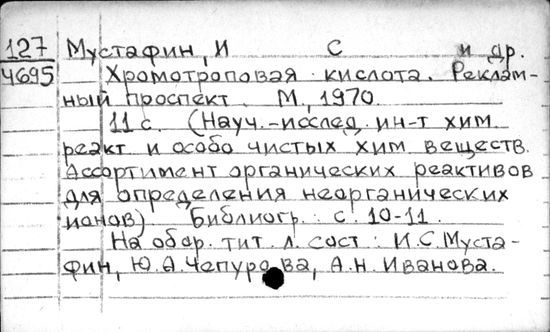 127 Мустафин, И С и др.
4695 Хромотроповая кислота. Реклам-
ный проспект. М., 1970.
11 с. (Науч.-исслед. ин-т хим.
реакт и особо чистых хим веществ.
Ассортимент органических реактивов
для определения неорганических
ионов) Библиогр.: с. 10-11.
На обор. тит. л. сост.: И.С. Муста-
фин, Ю.А. Чепурова, А.Н. Иванова.